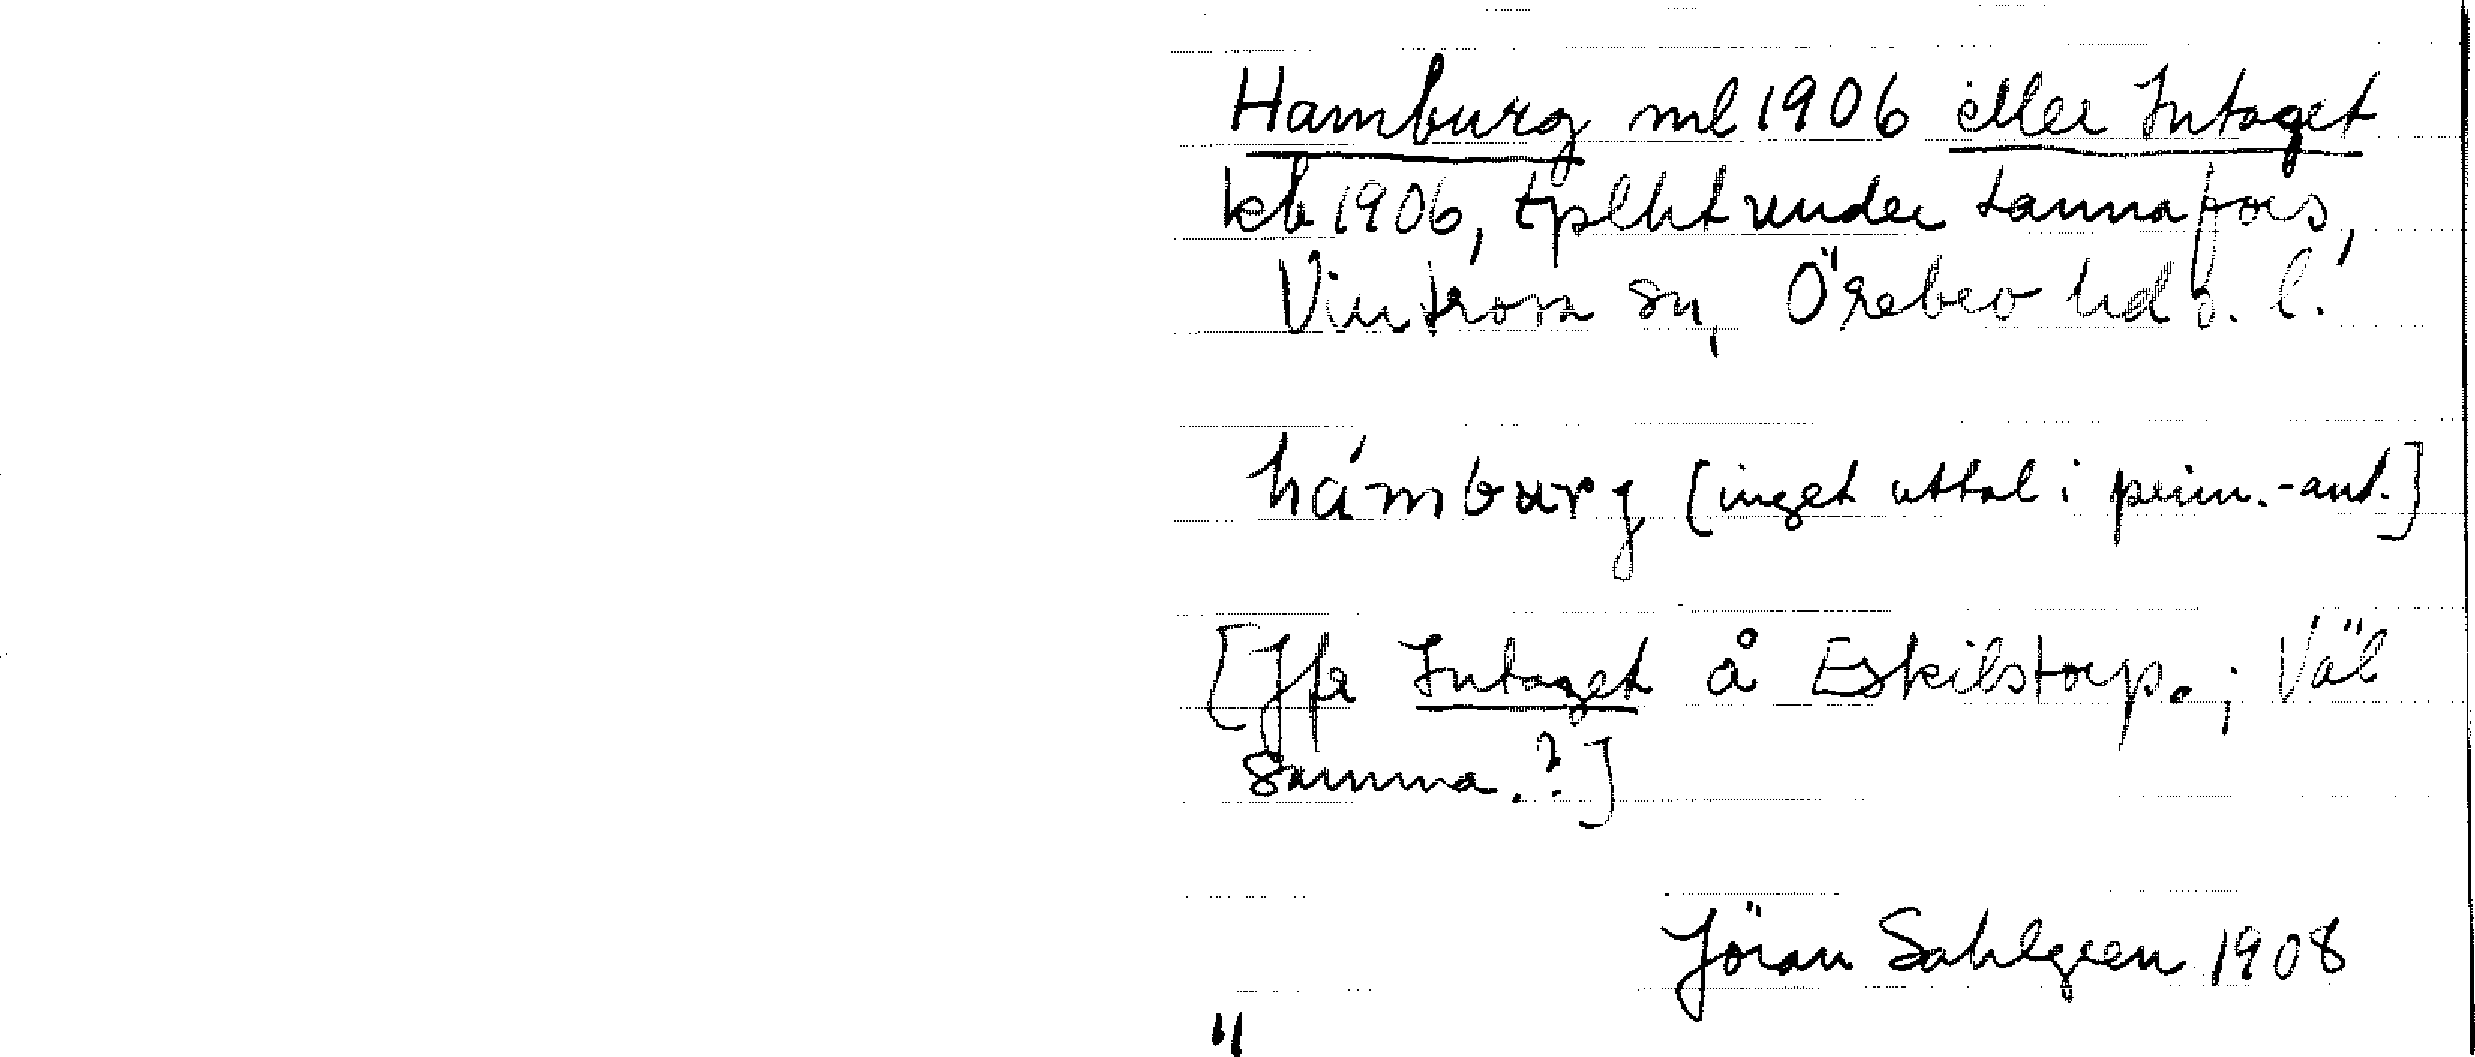 Hamburg ml 1906 eller Intaget
kb 1906, tplht under Lannafors,
Vintrosa sn, Örebro hd Ö. l.
hámburg [inget uttal i prim.-ant.]
[Jfr Intaget å Eskilstorp. ; Väl
samma.?]
Jöran Sahlgren 1908
"